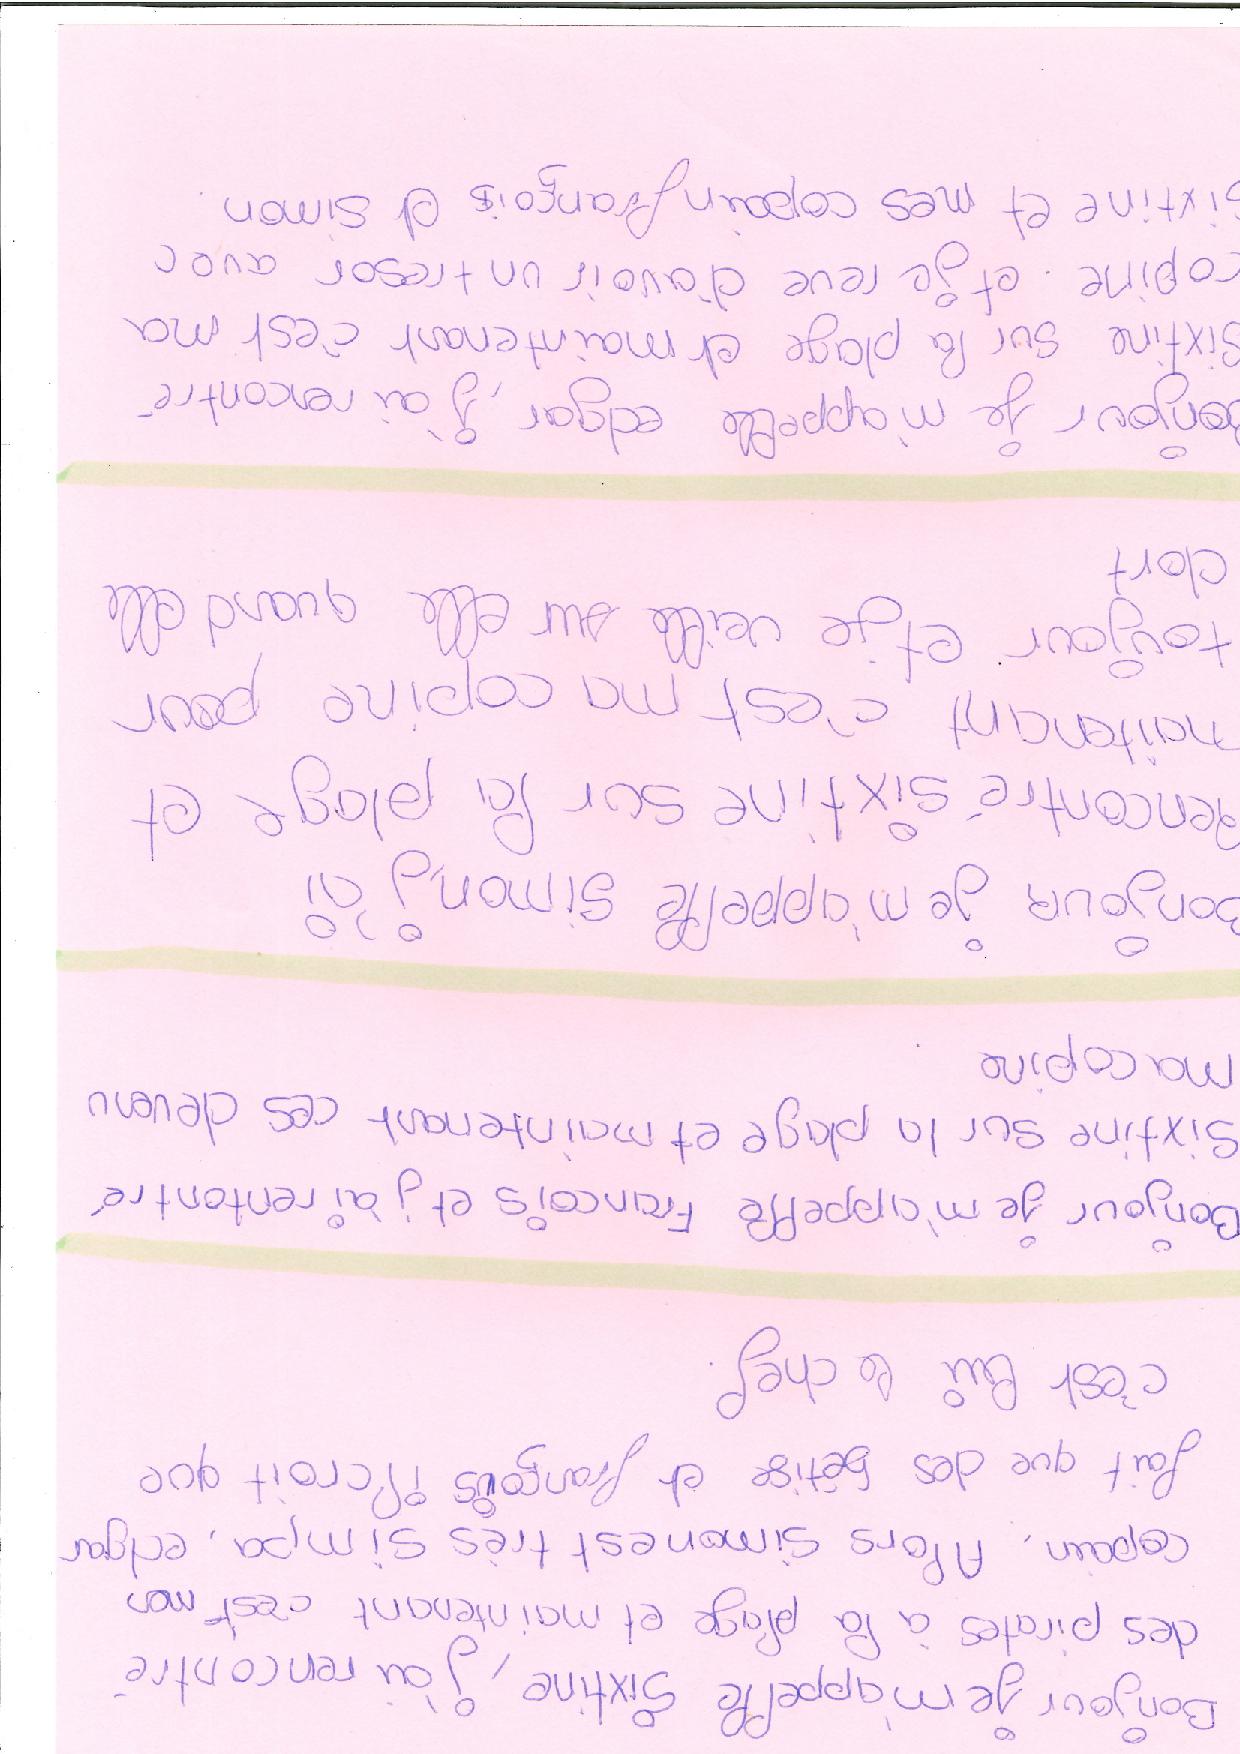 Bonjour je m'appelle Sixtine, j'ai rencontré
des pirates à la plage et maintenant c'est mon
copain. Alors Simon est très simpa, edgar
fait que des bétise et françois il croit que
c'est lui le chef.
Bonjour je m'appelle Francois et j'ai rentontré
Sixtine sur la plage et maintenant ces devenu
ma copine.
Bonjour je m'appelle Simon, j'ai
Rencontré sixtine sur la plage et
maitenant c'est ma copine pour
toujour et je veille sur elle quand elle
dort
Bonjour je m'appelle edgar, j'ai rencontré
Sixtine sur la plage et maintenant c'est ma
copine. et je reve d'avoir un tresor avec
Sixtine et mes copain françois et simon.